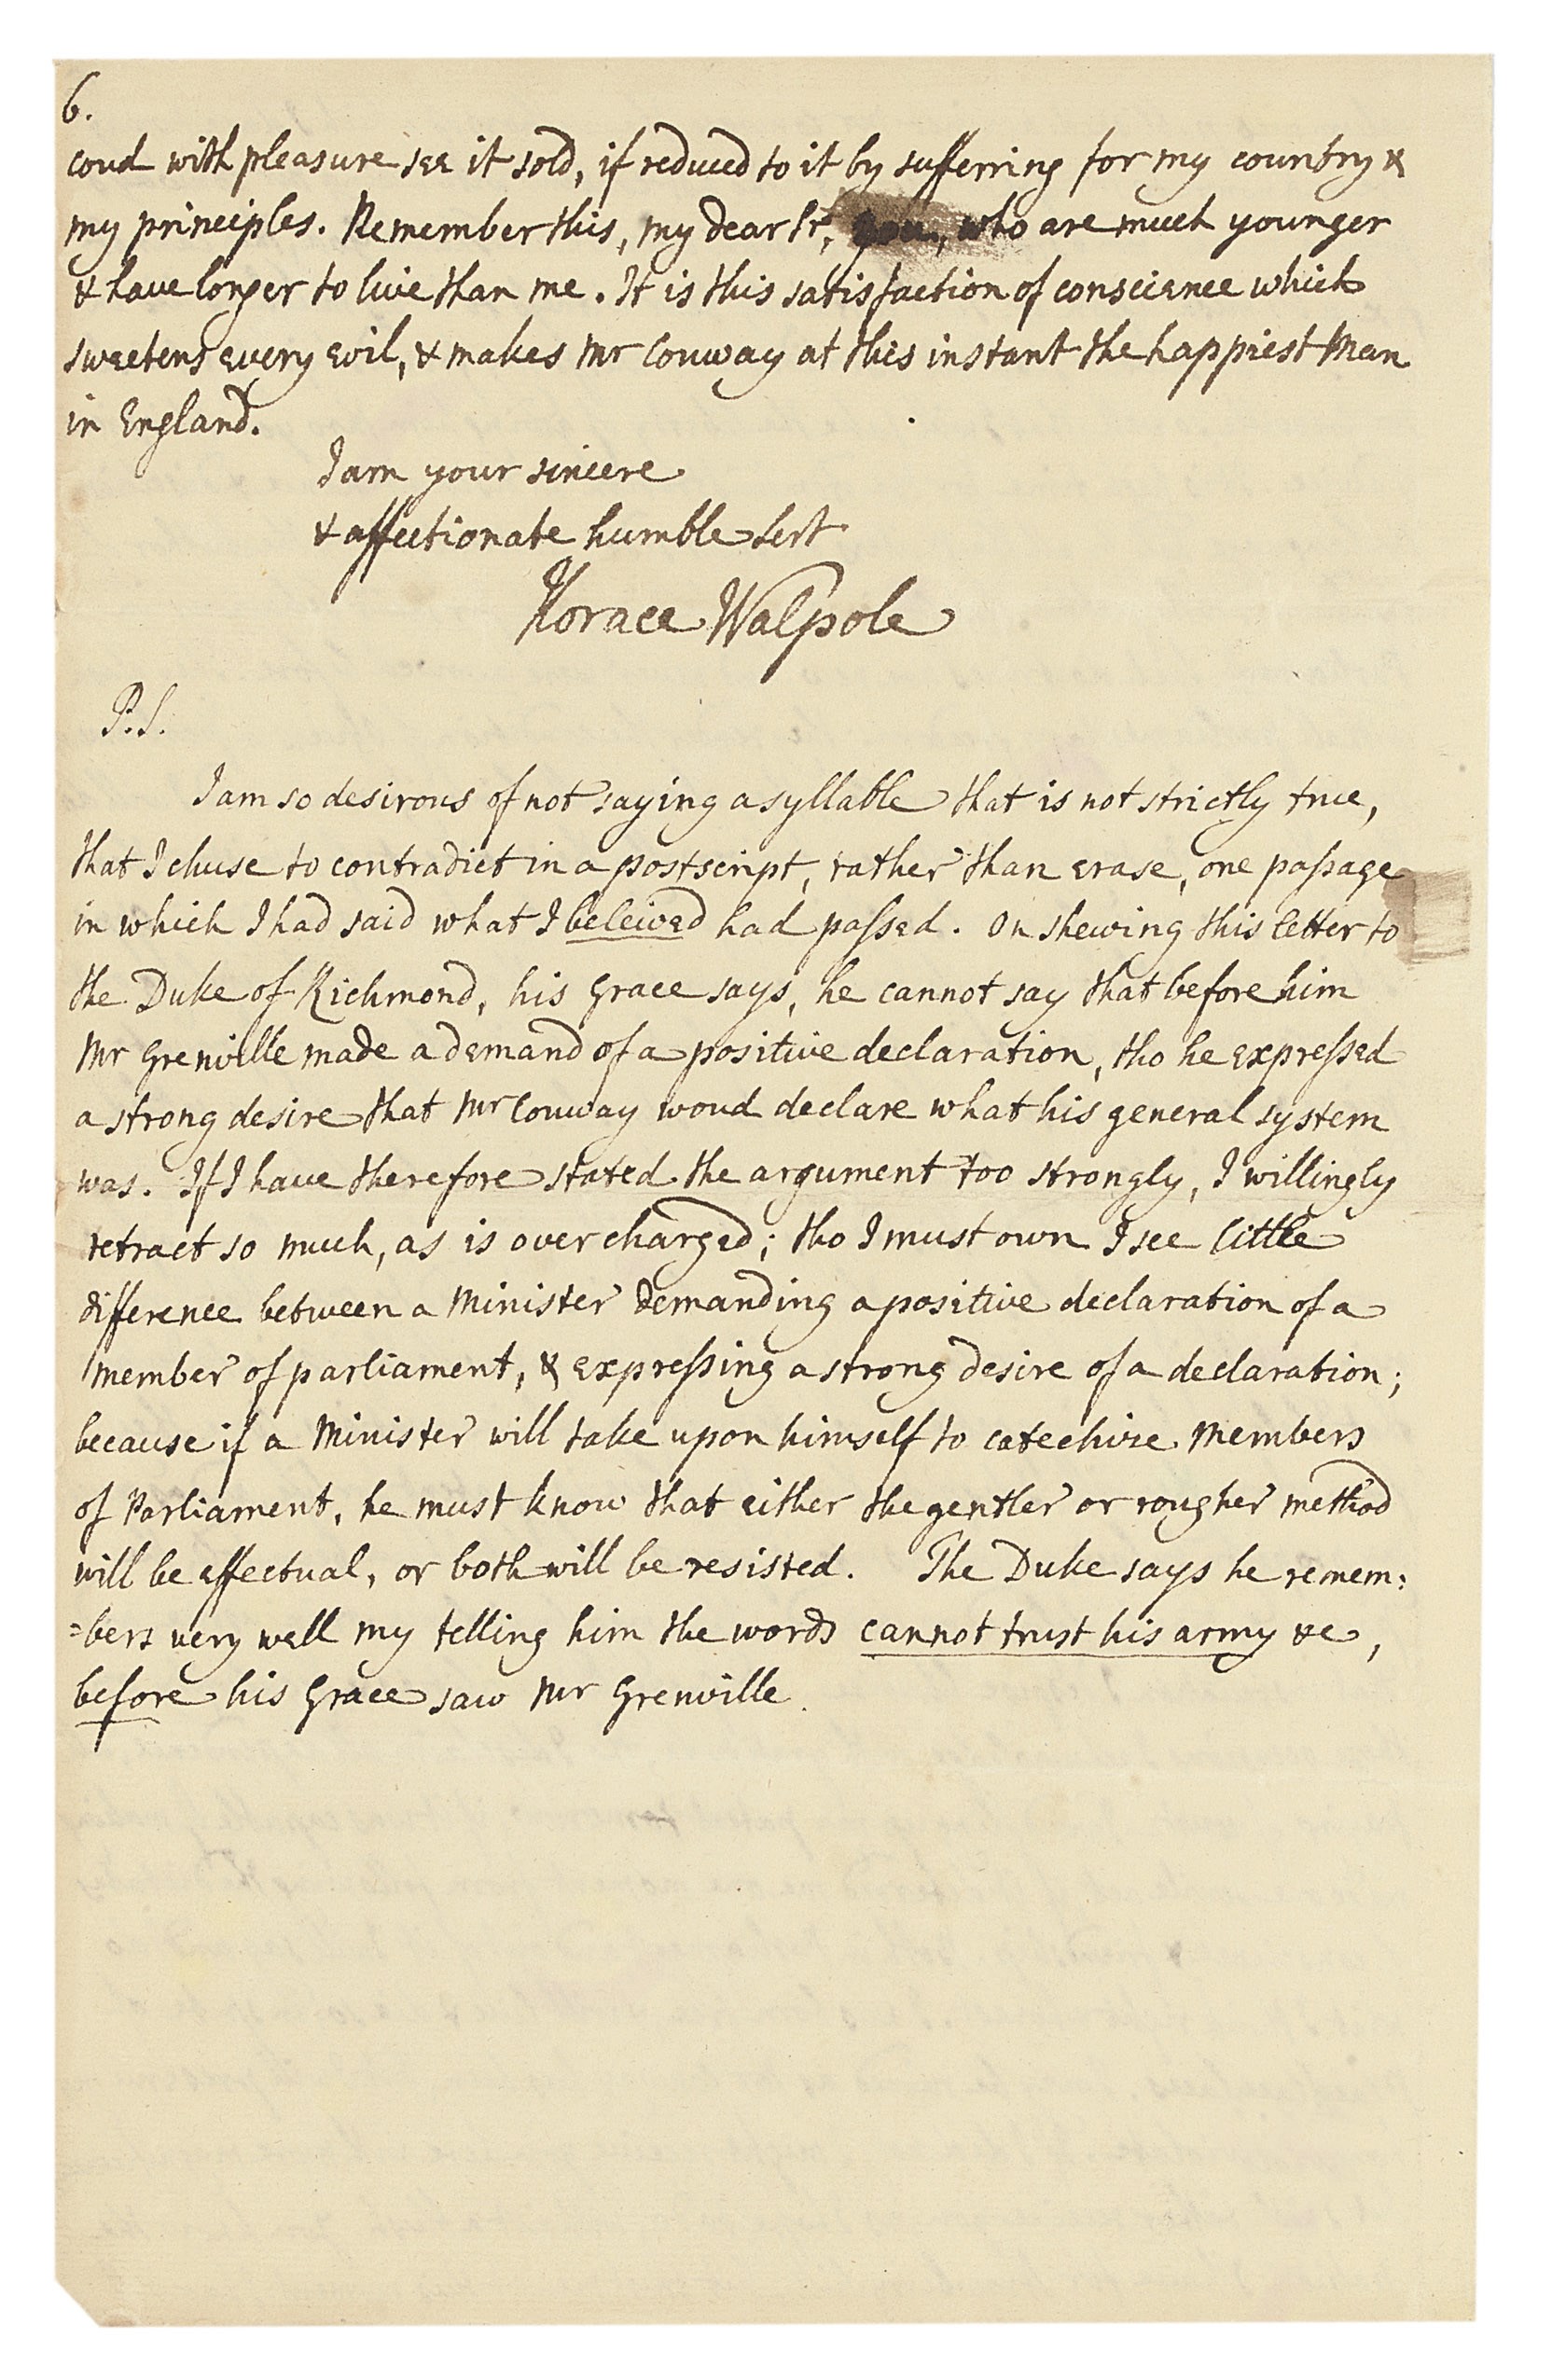 6.
coud with pleasure see it sold, if reduced to it by sufferring for my country &
my principles. Remember this, my dear Sr, you, who are much younger
& have longer to live than me. It is this satisfaction of conscience which
sweetens every evil, & makes Mr Conway at this instant the happiest Man
in England.
I am your sincere
& affectionate humble Sert
Horace Walpole
P.S.
I am so desirous of not saying a syllable that is not strictly true,
that I chuse to contradict in a postscript, rather than erase, one passage
in which I had said what I beleived had passed. On shewing this letter to
the Duke of Richmond, his Grace says, he cannot say that before him
Mr Grenville made a demand of a positive declaration, tho he expressed
a strong desire that Mr Conway woud declare what his general system
was. If I have therefore stated the argument too strongly, I willingly
retract so much, as is overcharged; tho I must own I see little
difference between a Minister demanding a positive declaration of a
member of parliament, & expressing a strong desire of a declaration;
because if a Minister will take upon himself to catechize Members
of Parliament, he must know that either the gentler or rougher method
will be effectual, or both will be resisted. The Duke says he remem:
=bers very well my telling him the words cannot trust his army &c,
before his Grace saw Mr Grenville.